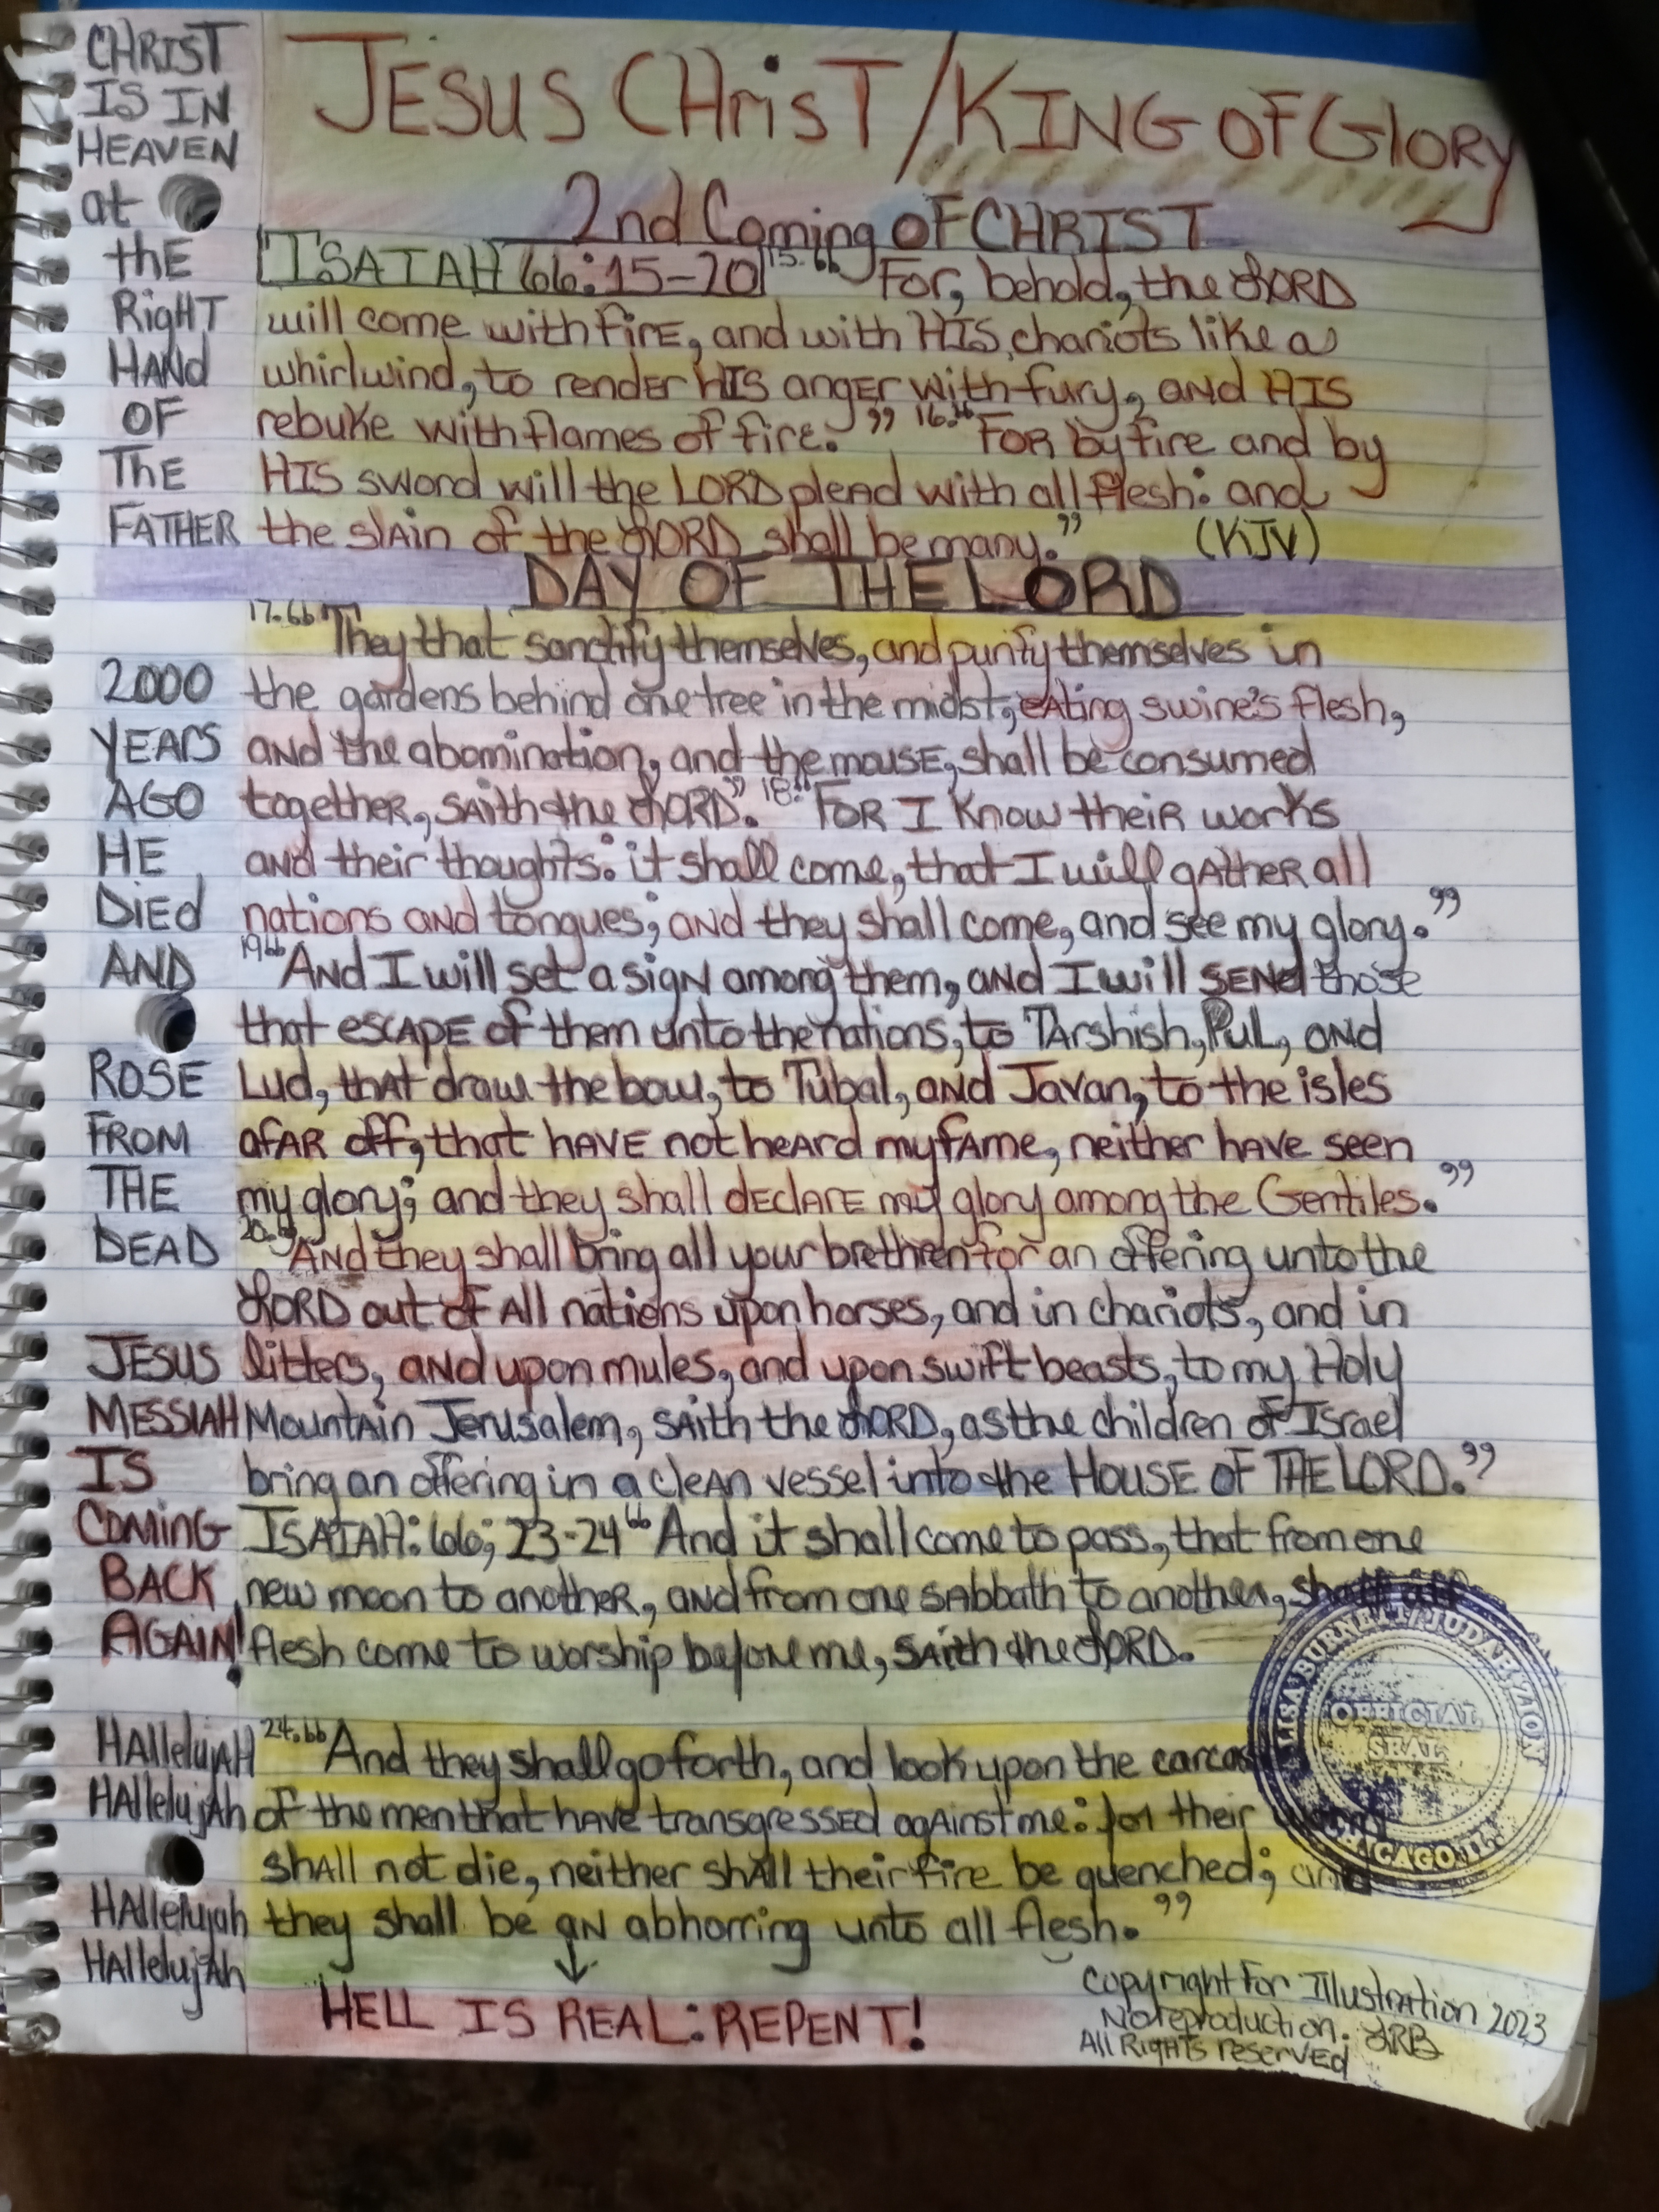 JESUS CHrisT/KING OF GlORY
2nd Coming OF CHRIST
"ISAIAH 66:15-20" 15.66 For, behold, the LORD
will come with FirE, and with HIS chariots like a
whirlwind, to rendER HIS angER with fury, AND HIS
rebuke with flames of fire." 16.66 FOR by fire and by
HIS sword will the LORD plead with all flesh: and
the slAin of the LORD shall be many." (KJV)
DAY OF THE LORD
17.66 "They that sanctify themselves, and purify themselves in
the gardens behind one tree in the midst, eAting swine's flesh,
AND the abomination, and the mousE, shall be consumed
togetheR, SAith the LORD." 18." FOR I Know theiR works
AND their thoughts: it shall come, that I will gATHER all
nations AND tongues; AND they shall come, and see my glory."
19 66 AND I will set a sigN among them, AND I will SENd those
that ESCAPE of them unto the nations, to TArshish, PuL, AND
Lud, thAT draw the bow, to Tubal, AND Javan, to the isles
afAR off, that HAVE not heard my fAme, neither have seen
my glory; and they shall dECLARE my glory among the Gentiles."
20. AND they shall bring all your brethren for an offering unto the
LORD out of All nations upon horses, and in chariots, and in
litters, aND upon mules, and upon swift beasts, to my Holy
MountAin Jerusalem, sAith the LORD, as the children of Israel
bring an offering in a cleAN vessel into the HOUSE OF THE LORD."
ISAIAH: 66; 23-24 66 And it shall come to pass, that from one
new moon to anotheR, AND from one SAbbath to another, shall all
flesh come to worship before me, SAith the LORD.
24.66 And they shall go forth, and look upon the
of the men that have transgressEd agAinst me: for their
shAll not die, neither shAll their fire be quenched; and
they shall be aN abhorring unto all flesh."
HELL IS REAL: REPENT!
CHRIST
IS IN
HEAVEN
at
thE
RigHT
HANd
OF
ThE
FATHER
2000
YEARS
AGO
HE
DiEd
AND
ROSE
FROM
THE
DEAD
JESUS
MESSIAH
IS
COMING
BACK
AGAIN!
HAllelujAH
HAllelujAh
HAllelujah
HAllelujAh
OFFICIAL
SEAL
LISA BURNETT/JUDAH ZION
CHICAGO IL.
Copyright For Illustration 2023
No reproduction. LRB
All RigHTs reservEd